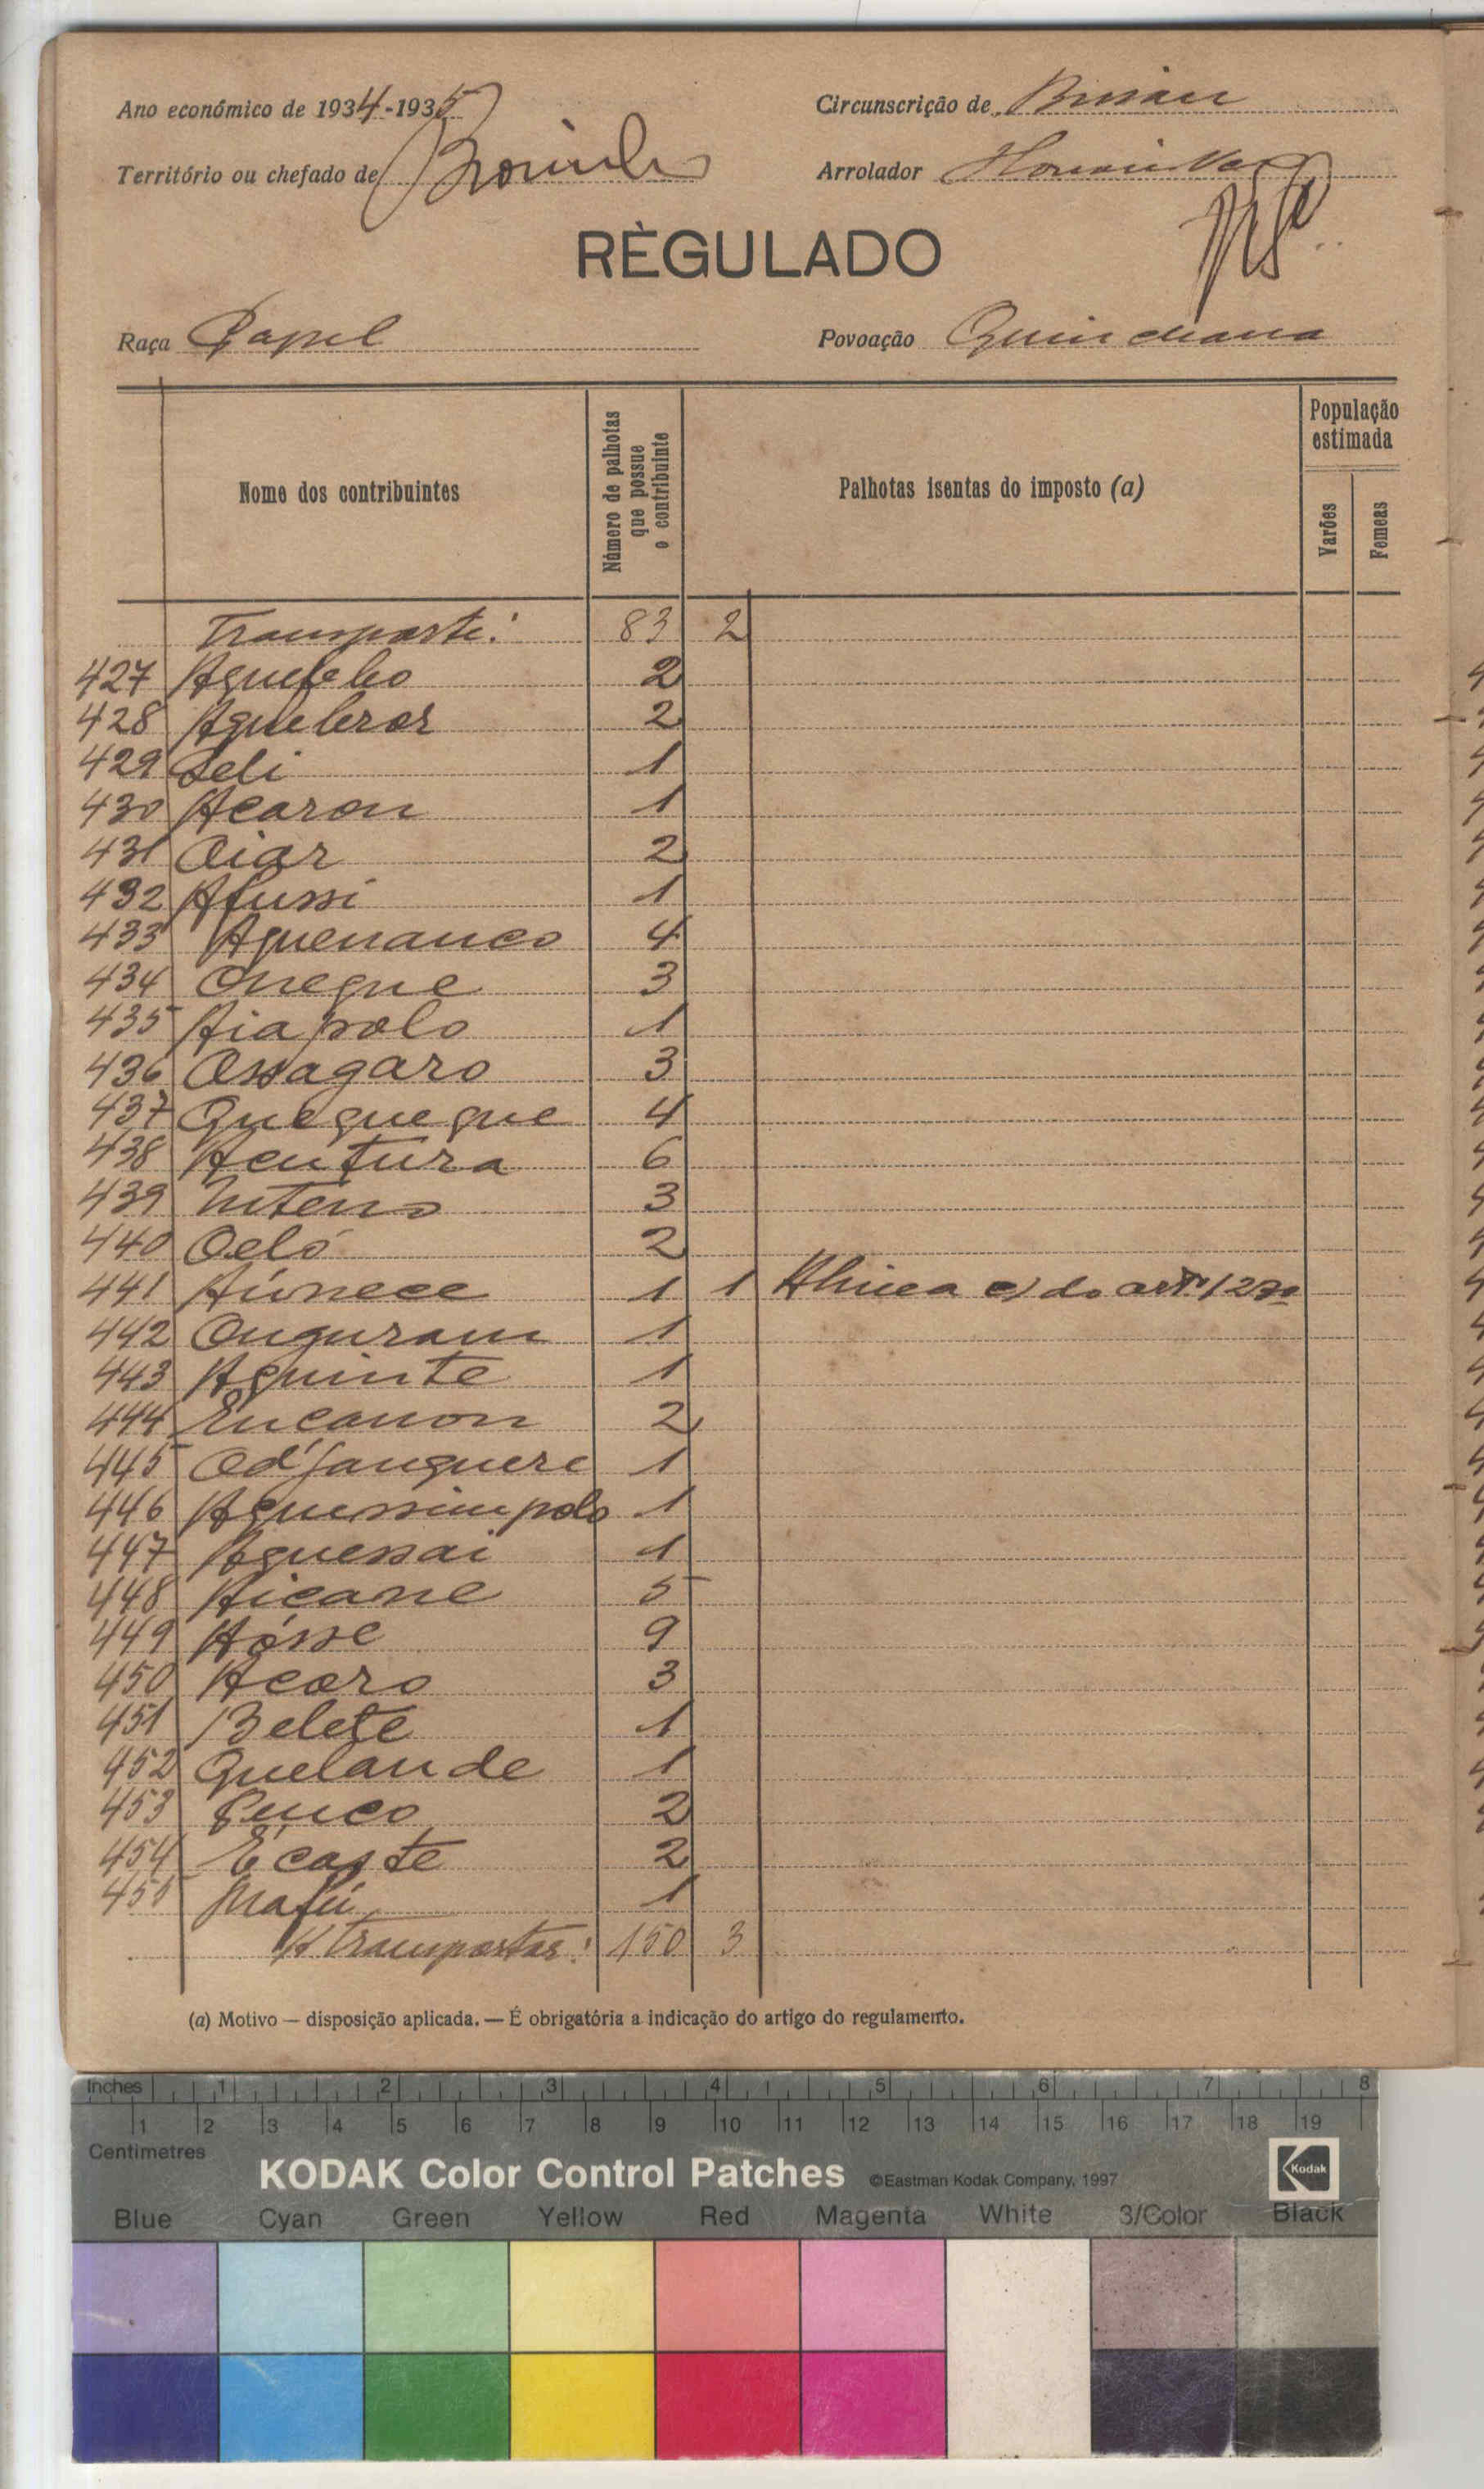 Ano económico de 1934-1935
Circunscrição de Bissau
Território ou chefado de
Arrolador
RÈGULADO
Raça Papel
Povoação Quinchana
Nome dos contribuintes
Número de palhotas que possue o contribuinte
Palhotas isentas do imposto (a)
População estimada
Varões
Femeas
Transporte: 83 2
427 2
428 2
429 Seli 1
430 Acaron 1
431 Oiar 2
432 Afussi 1
433 Aquenanco 4
434 Onegue 3
435 Aiapolo 1
436 Ossagaro 3
437 Quequeque 4
438 Aentura 6
439 3
440 Oeló 2
441 1 1 Alinea c) do artº 12º
442 Onguram 1
443 Aquinte 1
444 Encanon 2
445 Od'janguere 1
446 Aquessimpolo 1
447 Aquessai 1
448 Aicane 5
449 Aósse 9
450 Acoro 3
451 Belete 1
452 Quelande 1
453 2
454 2
455 Mafú 1
A transportar: 150 3
(a) Motivo — disposição aplicada. — É obrigatória a indicação do artigo do regulamento.
Inches 1 2 3 4 5 6 7 8
1 2 3 4 5 6 7 8 9 10 11 12 13 14 15 16 17 18 19
Centimetres
KODAK Color Control Patches ©Eastman Kodak Company, 1997 Kodak
Blue Cyan Green Yellow Red Magenta White 3/Color Black